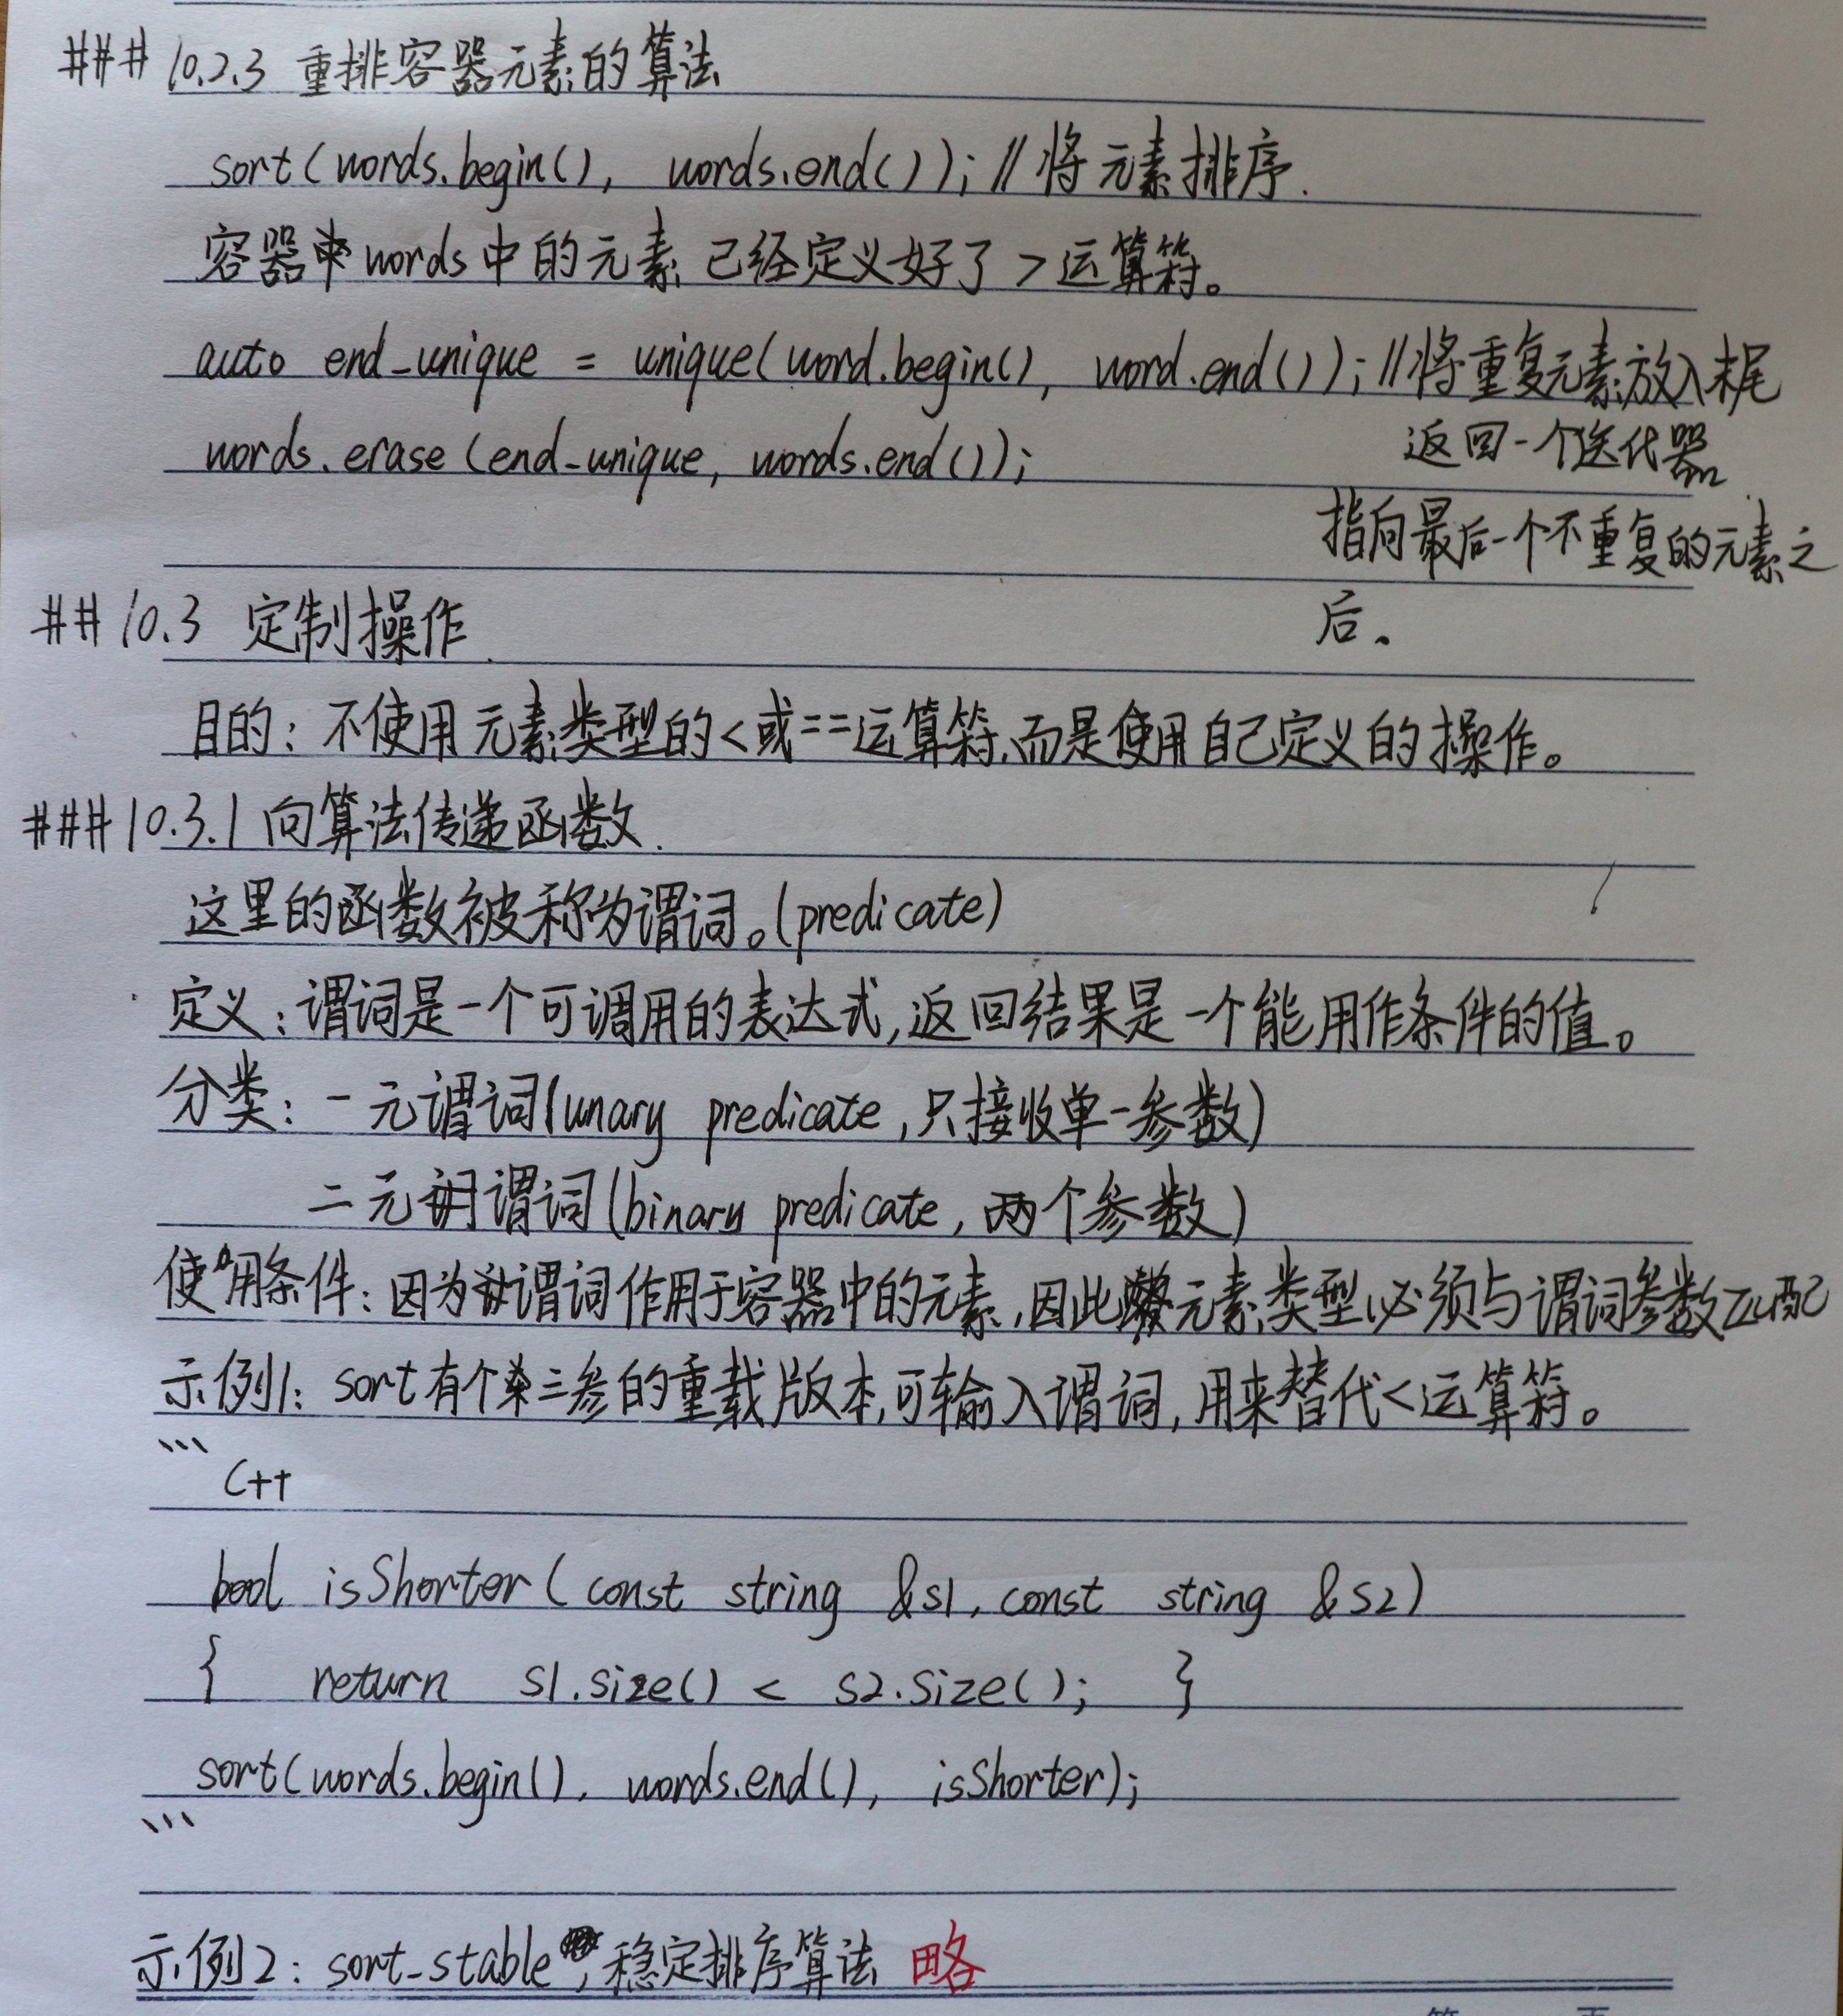 ### 10.2.3 重排容器元素的算法
sort(words.begin(), words.end()); //将元素排序.
容器words中的元素已经定义好了>运算符。
auto end_unique = unique(word.begin(), word.end()); //将重复元素放入末尾
返回一个迭代器
words.erase(end_unique, words.end());
指向最后一个不重复的元素之
后。
## 10.3 定制操作.
目的: 不使用元素类型的<或==运算符,而是使用自己定义的操作。
### 10.3.1 向算法传递函数.
这里的函数被称为谓词。(predicate)
定义:谓词是一个可调用的表达式,返回结果是一个能用作条件的值。
分类: 一元谓词(unary predicate,只接收单一参数)
二元谓词(binary predicate, 两个参数)
使用条件: 因为谓词作用于容器中的元素,因此元素类型必须与谓词参数匹配
示例1: sort有个三参的重载版本,可输入谓词,用来替代<运算符。
```
C++
bool isShorter(const string &s1, const string &s2)
{ return s1.size() < s2.size(); }
sort(words.begin(), words.end(), isShorter);
```
示例2: sort_stable,稳定排序算法 略
第 页